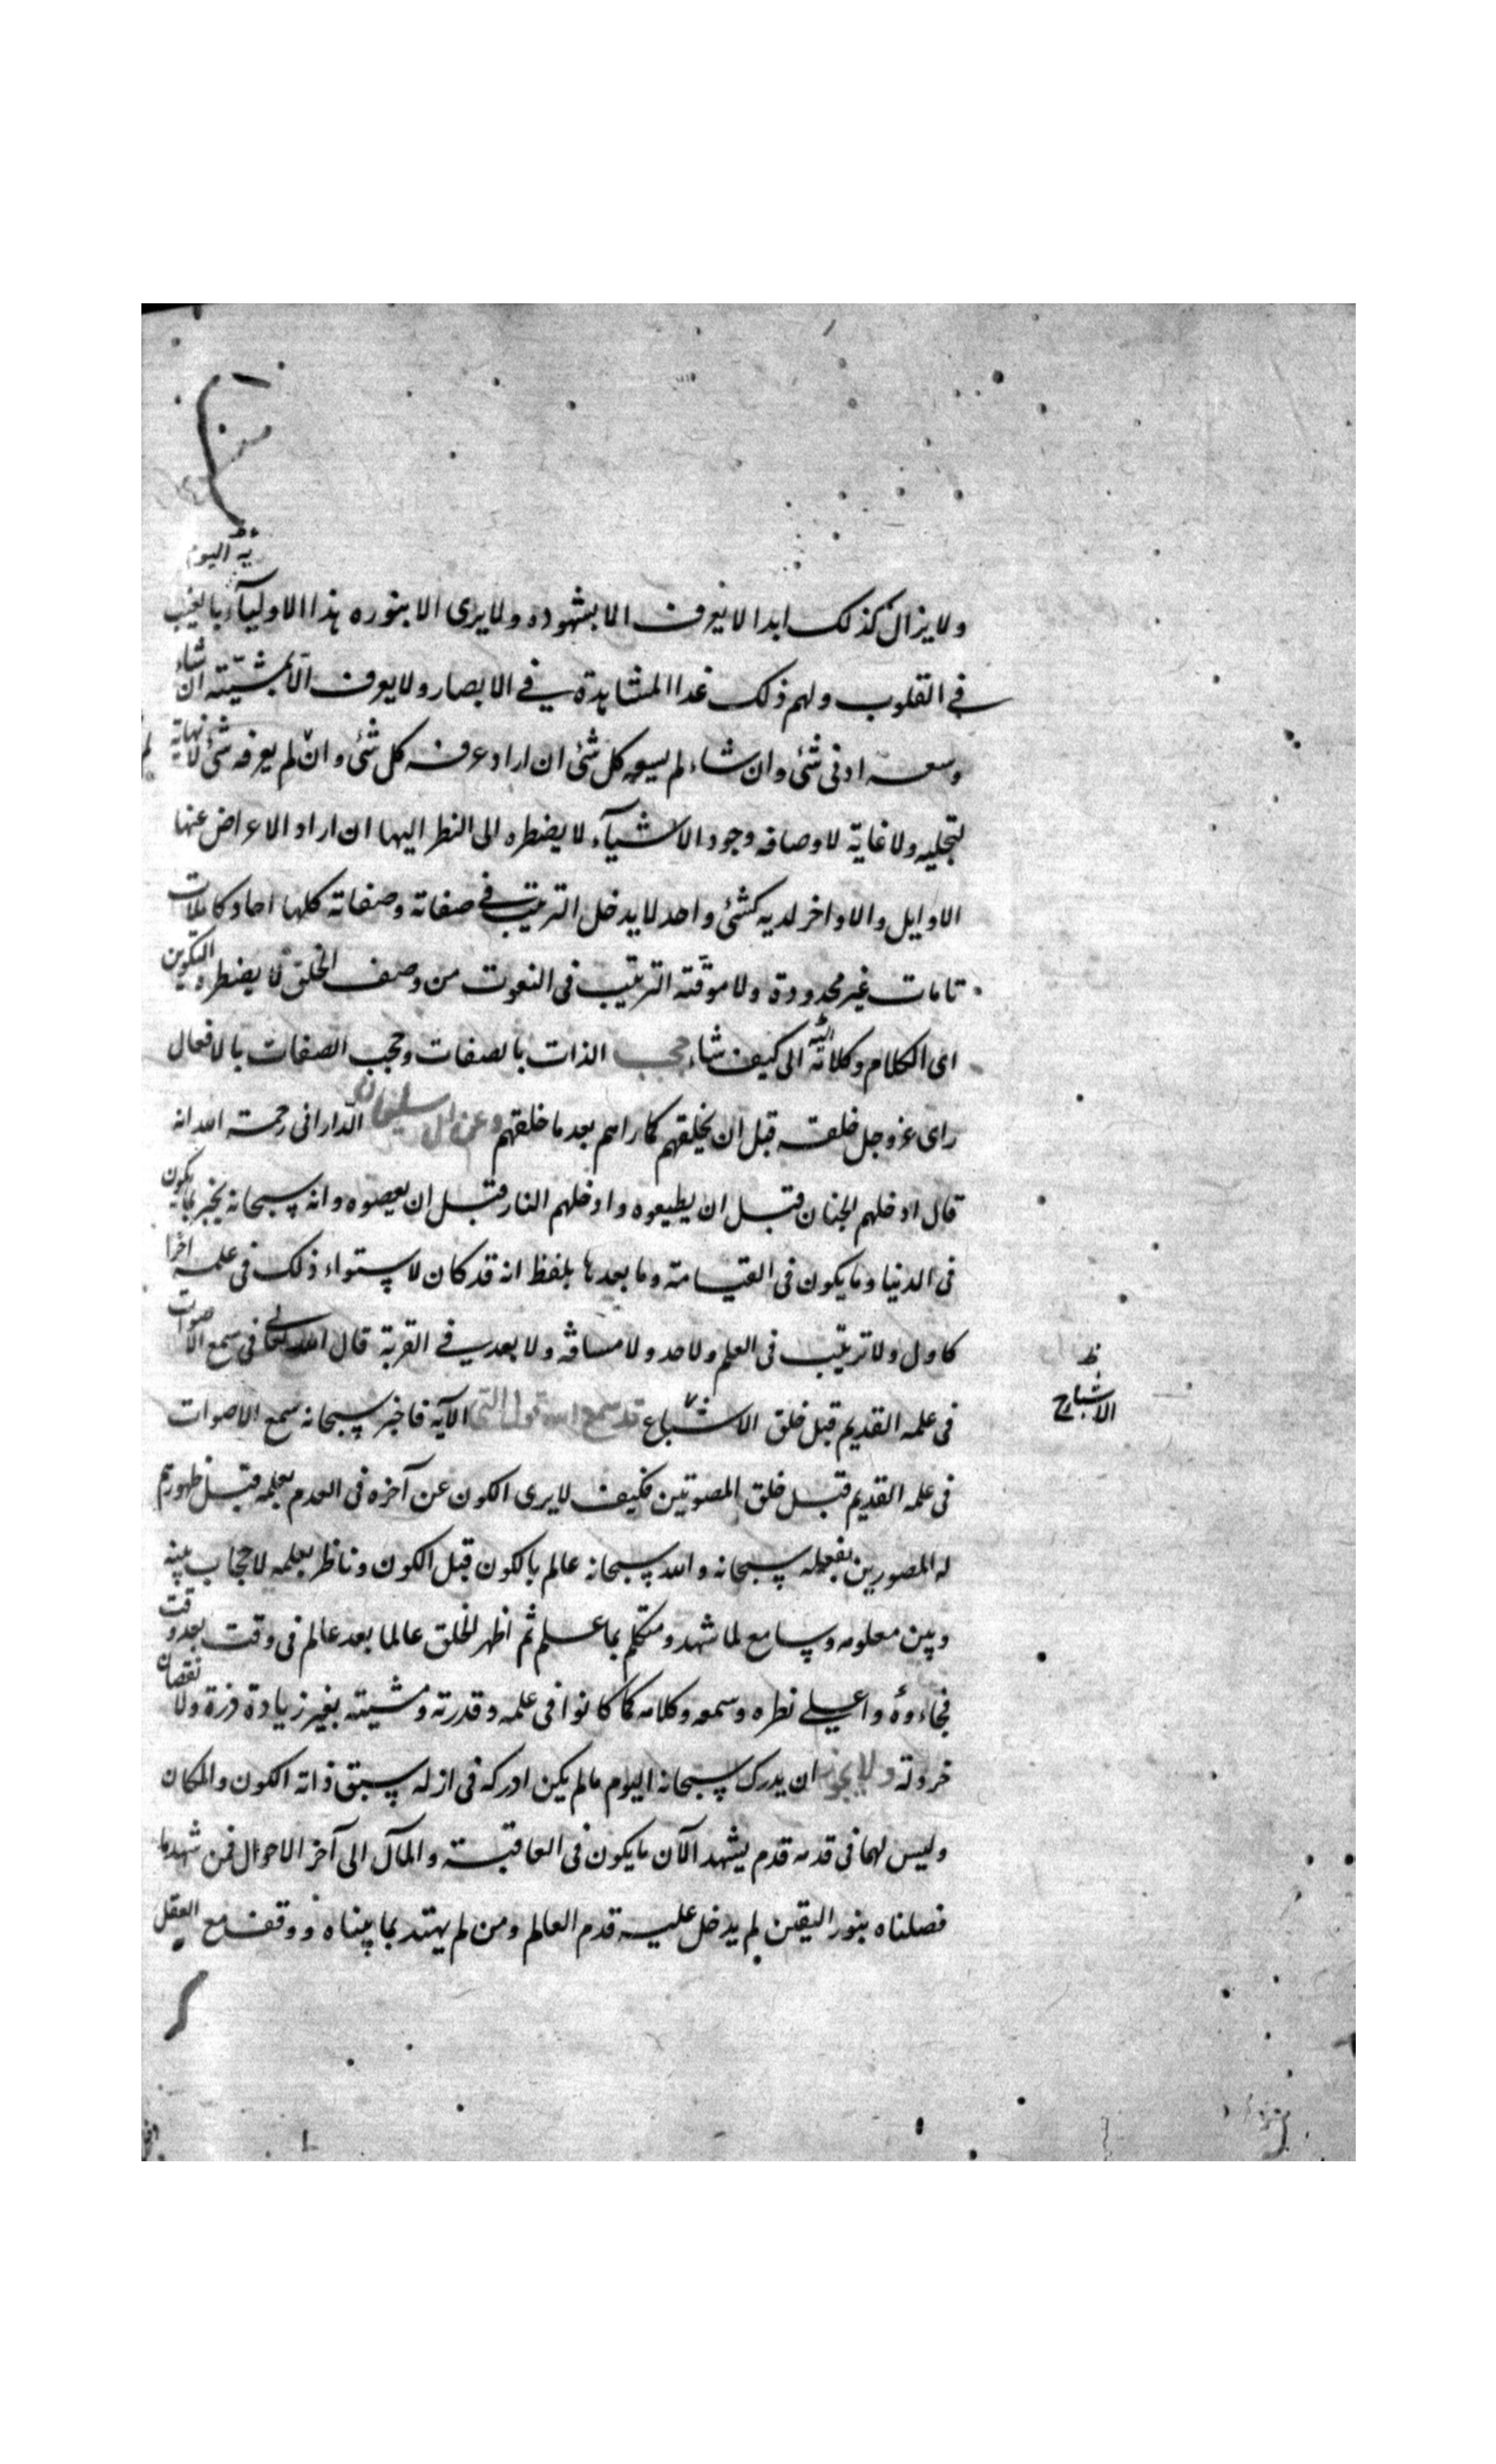 يه اليوم
ولا يزال كذلك ابدا لا يعرف الا بشهوده ولا يرى الا بنوره هذا الاولياء بالغيب
في القلوب ولهم ذلك غدا المشاهدة في الابصار ولا يعرف الا بمشيته ان شاء
وسعه ادنى شئ وان شاء لم يسعه كل شئ ان اراد عرفه كل شئ وان لم يعرفه شئ لا نهاية
لتجليه ولا غاية لاوصافه وجود الاشيآء لا يضطره الى النظر اليها ان اراد الاعراض عنها
الاوايل والاواخر لديه كشئ واحد لا يدخل الترتيب في صفاته وصفاته كلها احاد كاملات
تامات غير محدودة ولا موقتة الترتيب فى النعوت من وصف الخلق لا يضطره التكوين
اى الكلام وكلاته الى كيف شاء حجب الذات بالصفات وحجب الصفات بالافعال
راى عز وجل خلقه قبل ان يخلقهم كما راهم بعد ما خلقهم وعن ابى سليمان الدارانى رحمة الله انه
قال ادخلهم الجنان قبل ان يطيعوه وادخلهم النار قبل ان يعصوه وانه سبحانه يخبر بما يكون
فى الدنيا وما يكون فى القيامة وما بعدها بلفظ انه قد كان لاستواء ذلك فى علمه اخرا
كاول ولا ترتيب فى العلم ولا حد ولا مسافة ولا بعد في القربة قال الله تعالى فى سمع الاصوات
فى علمه القديم قبل خلق الاشباع قد سمع الله قول التى الآية فاخبر سبحانه سمع الاصوات
ظ
الاشباح
فى علمه القديم قبل خلق المصوتين فكيف لا يرى الكون عن آخره فى العدم بعلمه قبل ظهورهم
له المصورين بفعله سبحانه والله سبحانه عالم بالكون قبل الكون وناظر بعلمه لا حجاب بينه
وبين معلومه وسامع لما شهد ومتكلم بما علم ثم اظهر الخلق عالما بعد عالم فى وقت بعد وقت
فجاءوه واعلى نظره وسمعه وكلامه كما كانوا فى علمه وقدرته ومشيته بغير زيادة ذرة ولا نقصان
خردلة ولا يجوز ان يدرك سبحانه اليوم ما لم يكن ادركه فى ازله سبق ذاته الكون والمكان
وليس لهما فى قدمه قدم يشهد الآن ما يكون فى العاقبة والمآل الى آخر الاحوال فمن شهد ما
فصلناه بنور اليقين لم يدخل عليه قدم العالم ومن لم يهتد بما بيناه ووقف مع العقل